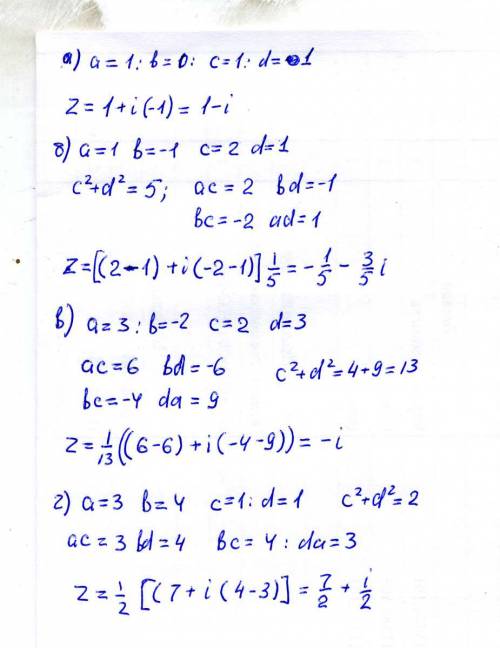 а) a = 1: b = 0: c = 1: d = 1
z = 1 + i(-1) = 1 - i
б) a = 1 b = -1 c = 2 d = 1
c² + d² = 5; ac = 2 bd = -1
bc = -2 ad = 1
z = [(2 - 1) + i(-2 - 1)] 1/5 = - 1/5 - 3/5 i
в) a = 3 : b = -2 c = 2 d = 3
ac = 6 bd = -6 c² + d² = 4 + 9 = 13
bc = -4 da = 9
z = 1/13 ((6 - 6) + i(-4 - 9)) = -i
г) a = 3 b = 4 c = 1: d = 1 c² + d² = 2
ac = 3 bd = 4 bc = 4 : da = 3
z = 1/2 [(7 + i(4 - 3)] = 7/2 + i/2